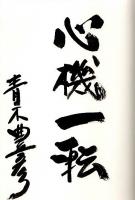 心機一転
青木豊彦